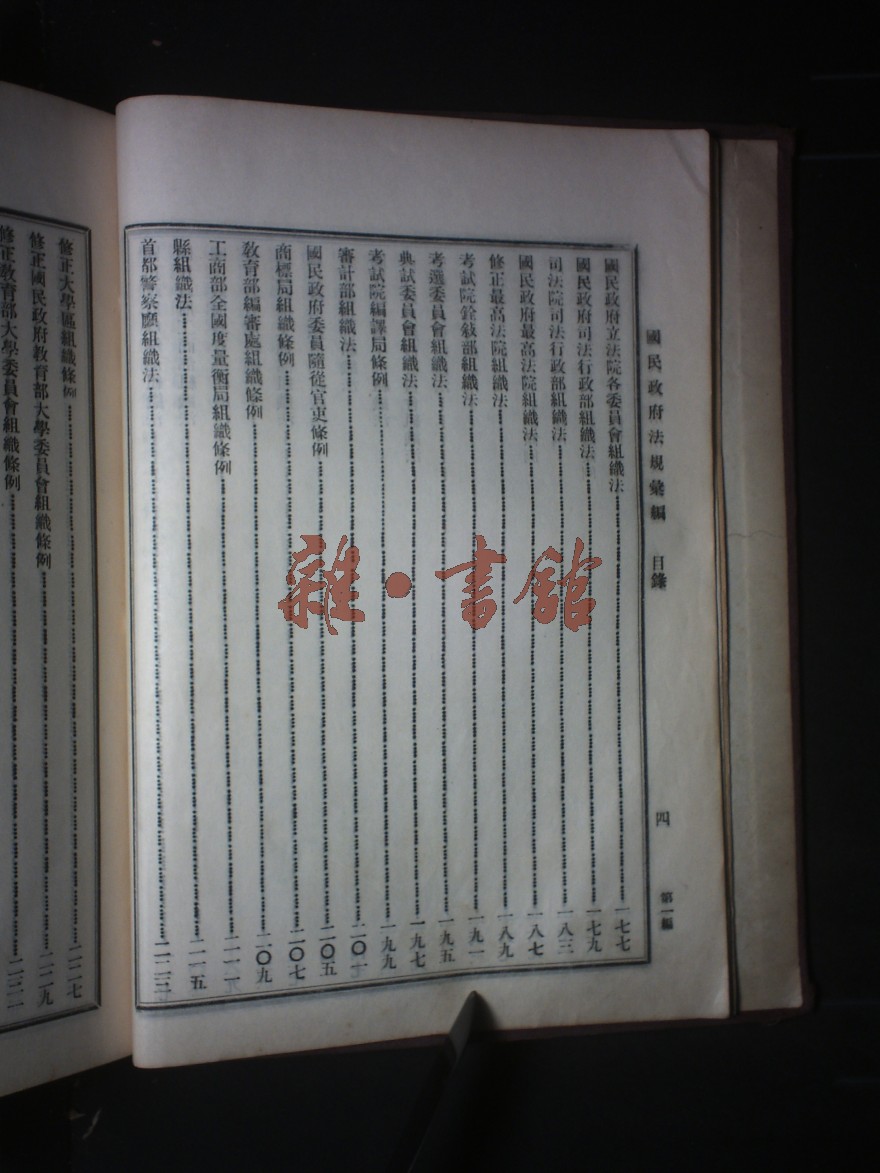 國民政府法規彙編　目錄　四　第一編
國民政府立法院各委員會組織法……一七七
國民政府司法行政部組織法……一七九
司法院司法行政部組織法……一八三
國民政府最高法院組織法……一八七
修正最高法院組織法……一八九
考試院銓敍部組織法……一九一
考選委員會組織法……一九五
典試委員會組織法……一九七
考試院編譯局條例……一九九
審計部組織法……二〇一
國民政府委員隨從官吏條例……二〇五
商標局組織條例……二〇七
敎育部編審處組織條例……二〇九
工商部全國度量衡局組織條例……二一一
縣組織法……二一五
首都警察廳組織法……二二三
修正大學區組織條例……二二七
修正國民政府敎育部大學委員會組織條例……二二九
修正敎育部大學委員會組織條例……二三一
雜·書館